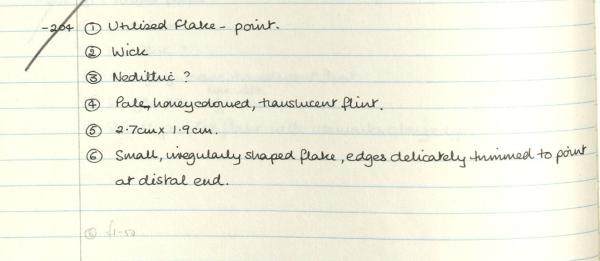 -204 ① Utilised flake - point.
② Wick
③ Neolithic ?
④ Pale, honeycoloured, translucent flint.
⑤ 2.7cm x 1.9cm.
⑥ Small, irregularly shaped flake, edges delicately trimmed to point
at distal end.
⑥ £1-50